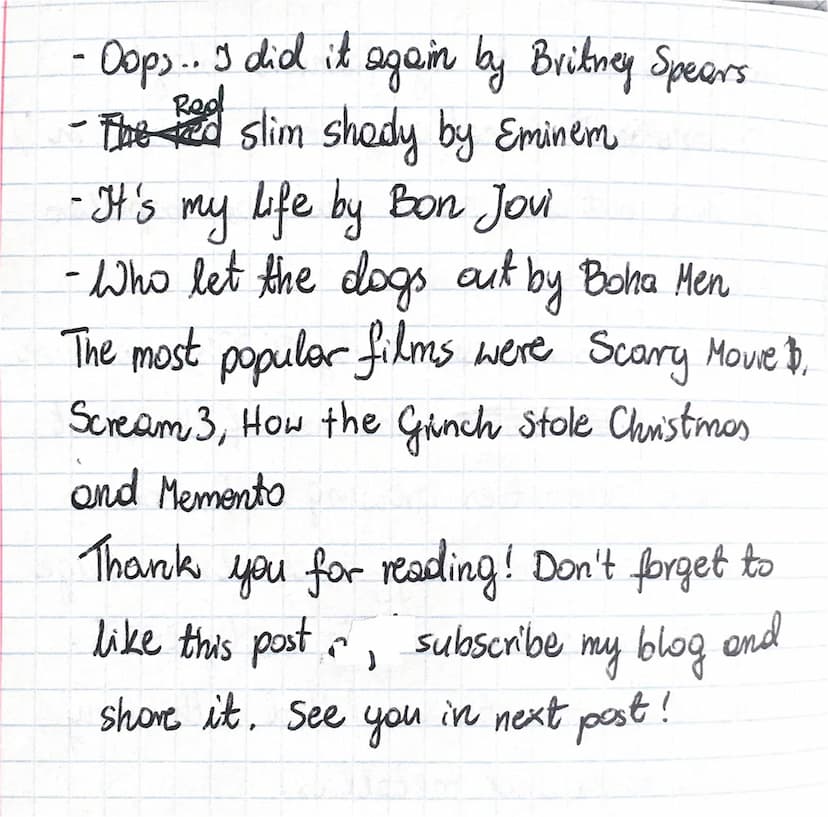 - Oops.. I did it again by Britney Spears
- Real slim shady by Eminem
- It's my life by Bon Jovi
- Who let the dogs out by Boha Men
The most popular films were Scary Movie,
Scream 3, How the Grinch Stole Christmas
and Memento
Thank you for reading! Don't forget to
like this post, subscribe my blog and
share it. See you in next post!